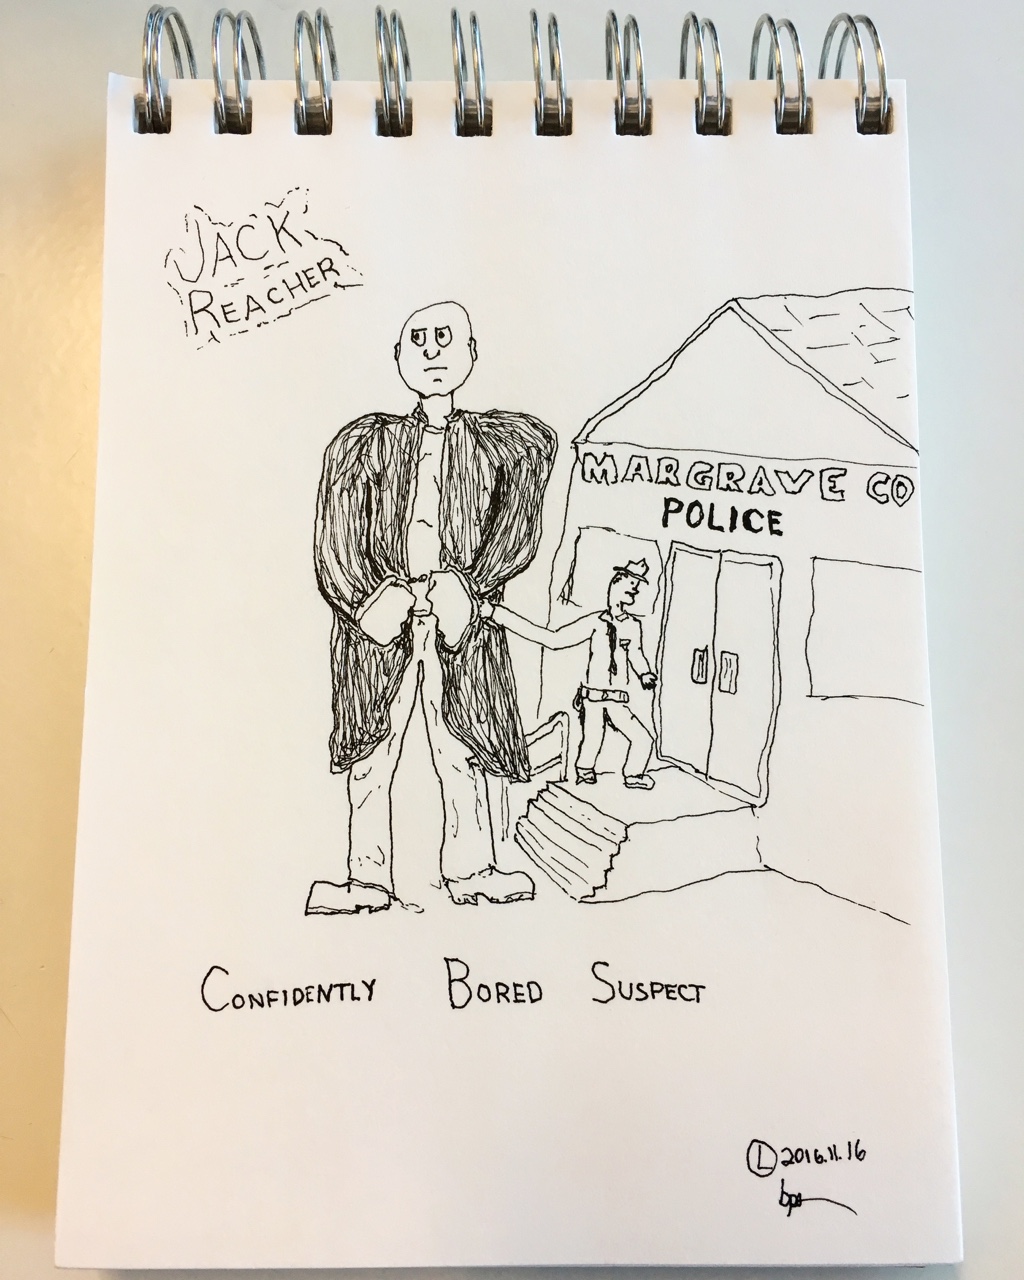 JACK
REACHER
MARGRAVE CO
POLICE
CONFIDENTLY BORED SUSPECT
Ⓛ 2016.11.16